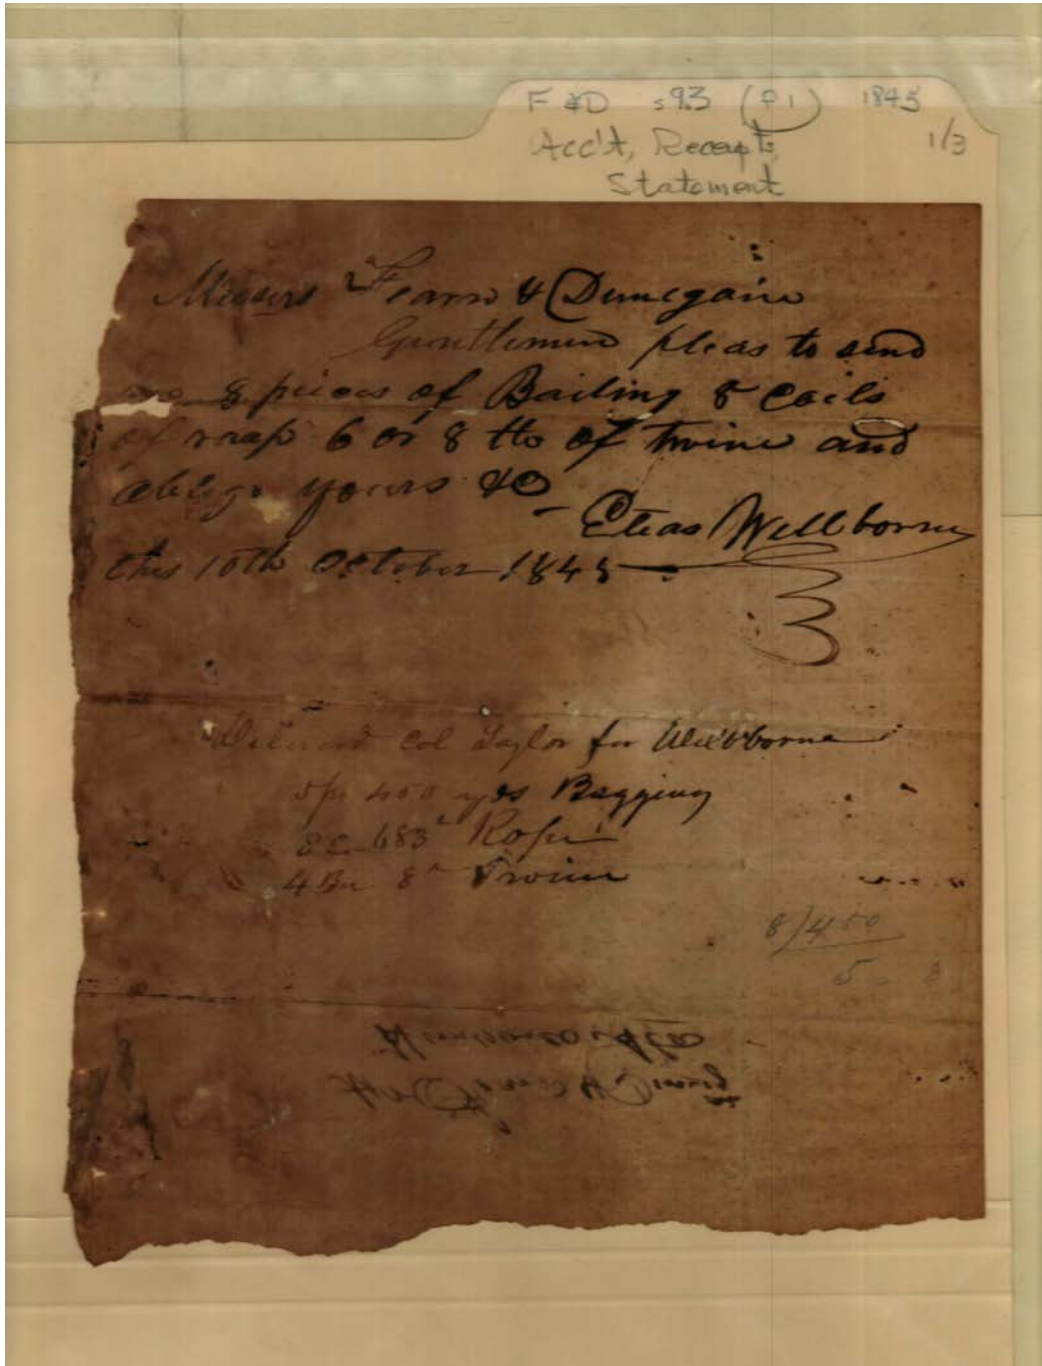 F & D s93 (P1) 1845
1/3
Acc't, Receipts,
Statement
Messers Fearn & Dunegain
Gentlemen pleas to send
me 8 pieces of Bailing 8 Coils
of roap 6 or 8 lbs of twine and
oblige yours &c
Elias Wellborne
this 10th October 1845
Col Taylor for Wellborne
450 yds Bagging
8 C 683 Rope
4 Bn 8 Twine
8)450
5